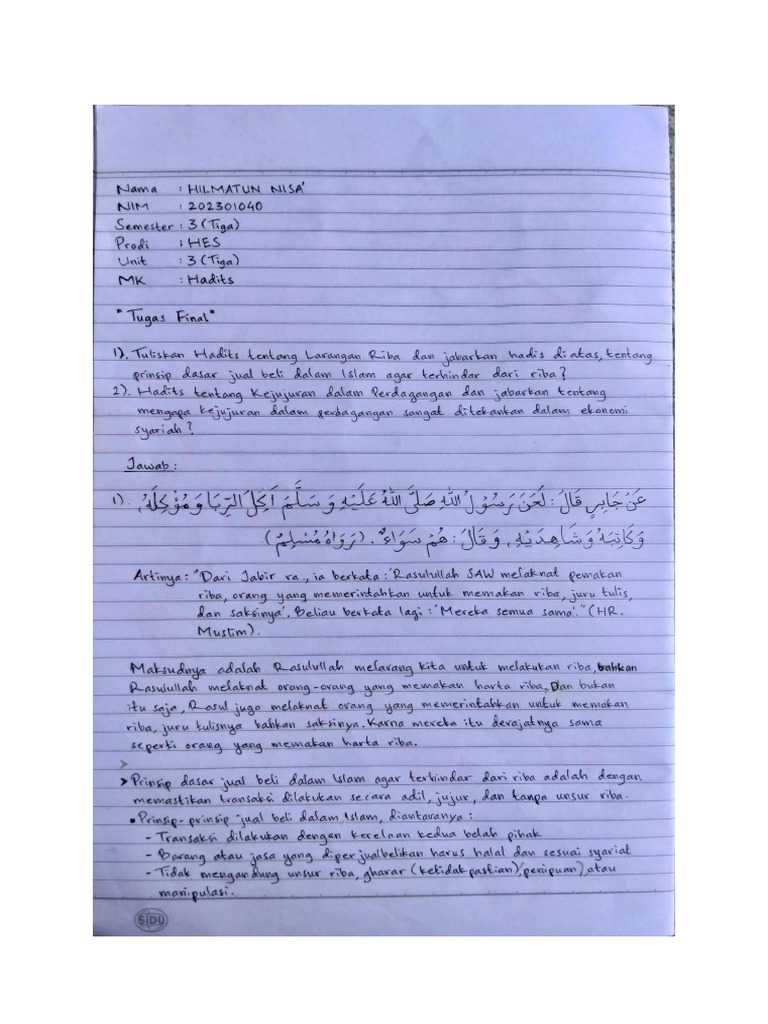 Nama : HILMATUN NISA'
NIM : 202301040
Semester : 3 (Tiga)
Prodi : HES
Unit : 3 (Tiga)
MK : Hadits
"Tugas Final"
1). Tuliskan Hadits tentang Larangan Riba dan jabarkan hadis di atas, tentang
prinsip dasar jual beli dalam Islam agar terhindar dari riba?
2). Hadits tentang Kejujuran dalam Perdagangan dan jabarkan tentang
mengapa kejujuran dalam perdagangan sangat ditekankan dalam ekonomi
syariah?
Jawab :
1). عَنْ جَابِرٍ قَالَ : لَعَنَ رَسُوْلُ اللهِ صَلَّى اللهُ عَلَيْهِ وَسَلَّمَ آكِلَ الرِّبَا وَمُؤْكِلَهُ,
وَكَاتِبَهُ وَشَاهِدَيْهِ, وَقَالَ : هُمْ سَوَاءٌ . (رَوَاهُ مُسْلِمٌ)
Artinya : "Dari Jabir ra., ia berkata : 'Rasulullah SAW melaknat pemakan
riba, orang yang memerintahkan untuk memakan riba, juru tulis,
dan saksinya'. Beliau berkata lagi : 'Mereka semua sama'." (HR.
Muslim).
Maksudnya adalah Rasulullah melarang kita untuk melakukan riba, bahkan
Rasulullah melaknat orang-orang yang memakan harta riba, Dan bukan
itu saja, Rasul juga melaknat orang yang memerintahkan untuk memakan
riba, juru tulisnya bahkan saksinya. Karna mereka itu derajatnya sama
seperti orang yang memakan harta riba.
>
> Prinsip dasar jual beli dalam Islam agar terhindar dari riba adalah dengan
memastikan transaksi dilakukan secara adil, jujur, dan tanpa unsur riba.
• Prinsip-prinsip jual beli dalam Islam, diantaranya :
- Transaksi dilakukan dengan kerelaan kedua belah pihak
- Barang atau jasa yang diperjualbelikan harus halal dan sesuai syariat
- Tidak mengandung unsur riba, gharar (ketidakpastian), penipuan), atau
manipulasi.
SiDU